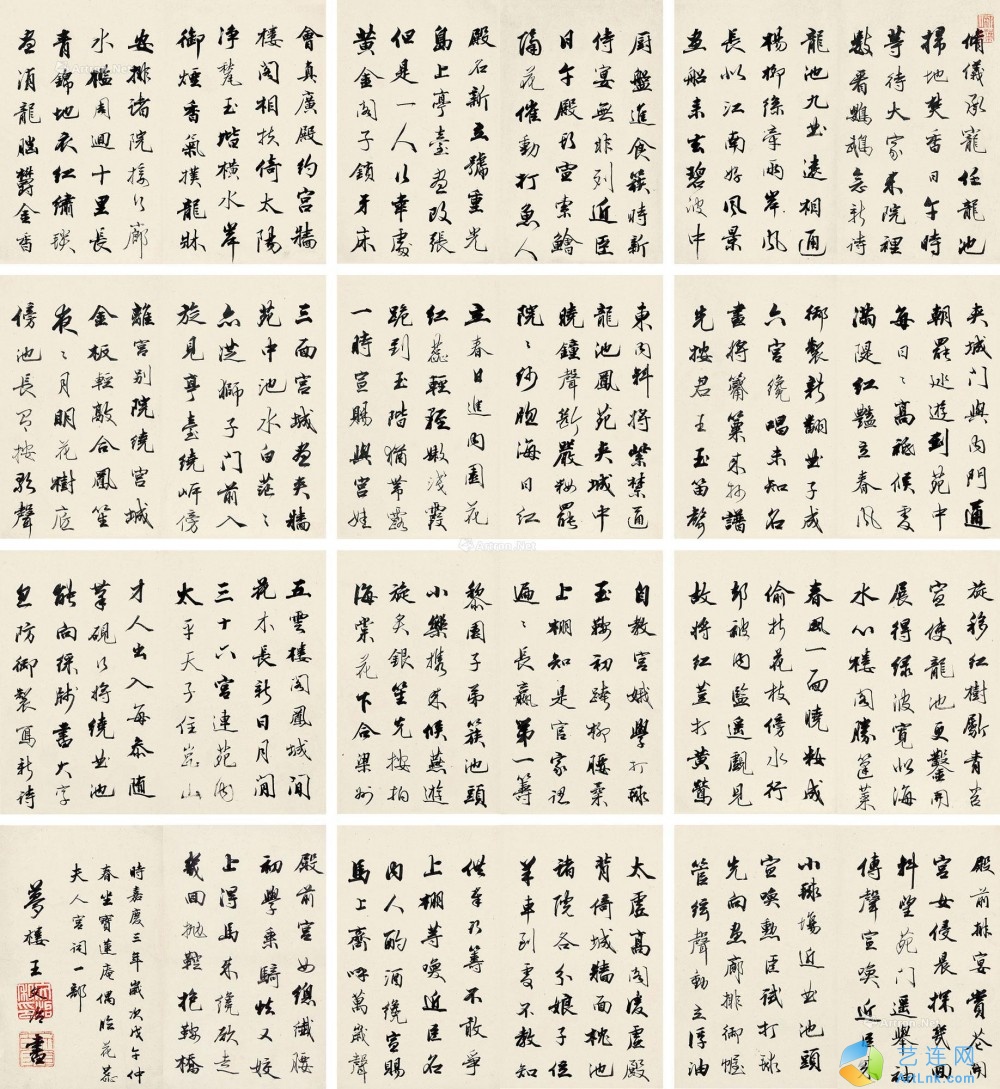 脩儀承寵住龍池
掃地焚香日午時
等待大家來院裡
數看鸚鵡念新詩
龍池九曲遠相通
楊柳絲牽兩岸風
長似江南好風景
畫船來去碧波中
厨盤進食簇時新
侍宴無非列近臣
日午殿頭宣索鱠
隔花催動打魚人
殿名新立號重光
島上亭臺盡改張
但是一人行幸處
黃金閣子鎖牙床
會真廣殿約宮牆
樓閣相扶倚太陽
淨甃玉堦橫水岸
御煙香氣撲龍牀
安排諸院接行廊
水檻周迴十里長
青錦地衣紅繡毯
盡鋪龍腦鬱金香
夾城門與內門通
朝罷巡遊到苑中
每日々高祗候處
滿隄紅豔立春風
御製新翻曲子成
六宮纔唱未知名
盡將觱篥來抄譜
先按君王玉笛聲
東內斜將紫禁通
龍池鳳苑夾城中
曉鐘聲斷嚴粧罷
院々紗牕海日紅
立春日進內園花
紅蕊輕輕嫩淺霞
跪到玉階猶帶露
一時宣賜與宮娃
三面宮城盡夾牆
苑中池水白茫々
亦從獅子門前入
旋見亭臺繞岸傍
離宮別院繞宮城
金板輕敲合鳳笙
夜々月明花樹底
傍池長有按歌聲
旋移紅樹斸青苔
宣使龍池更鑿開
展得綠波寬似海
水心樓閣勝蓬萊
春風一面曉粧成
偷折花枝傍水行
却被內監遙覷見
故將紅豆打黃鶯
自教宮娥學打毬
玉鞍初跨柳腰柔
上棚知是官家認
遍々長贏第一籌
梨園子弟簇池頭
小樂攜來候燕遊
旋炙銀笙先按拍
海棠花下合梁州
五雲樓閣鳳城間
花木長新日月間
三十六宮連苑內
太平天子住崑山
才人出入每參隨
筆硯行將繞曲池
能向綵牋書大字
忽防御製寫新詩
殿前排宴賞花開
宮女侵晨探幾回
斜望苑門遙舉袖
傳聲宣喚近臣來
小毬場近曲池頭
宣喚勳臣試打毬
先向畫廊排御幄
管絃聲動立浮油
太虛高閣凌虛殿
背倚城牆面枕池
諸院各分娘子位
羊車到處不教知
供奉頭籌不敢爭
上棚等喚近臣名
內人酌酒纔宣賜
馬上齊呼萬歲聲
殿前宮女總纖腰
初學乘騎怯又嬌
上得馬來纔欲走
幾回拋鞚抱鞍橋
時嘉慶三年歲次戊午仲
春坐寶蓮庵偶臨花蕊
夫人宮詞一部
夢樓王文治書
Artron.Net
艺连网
artlnk.com